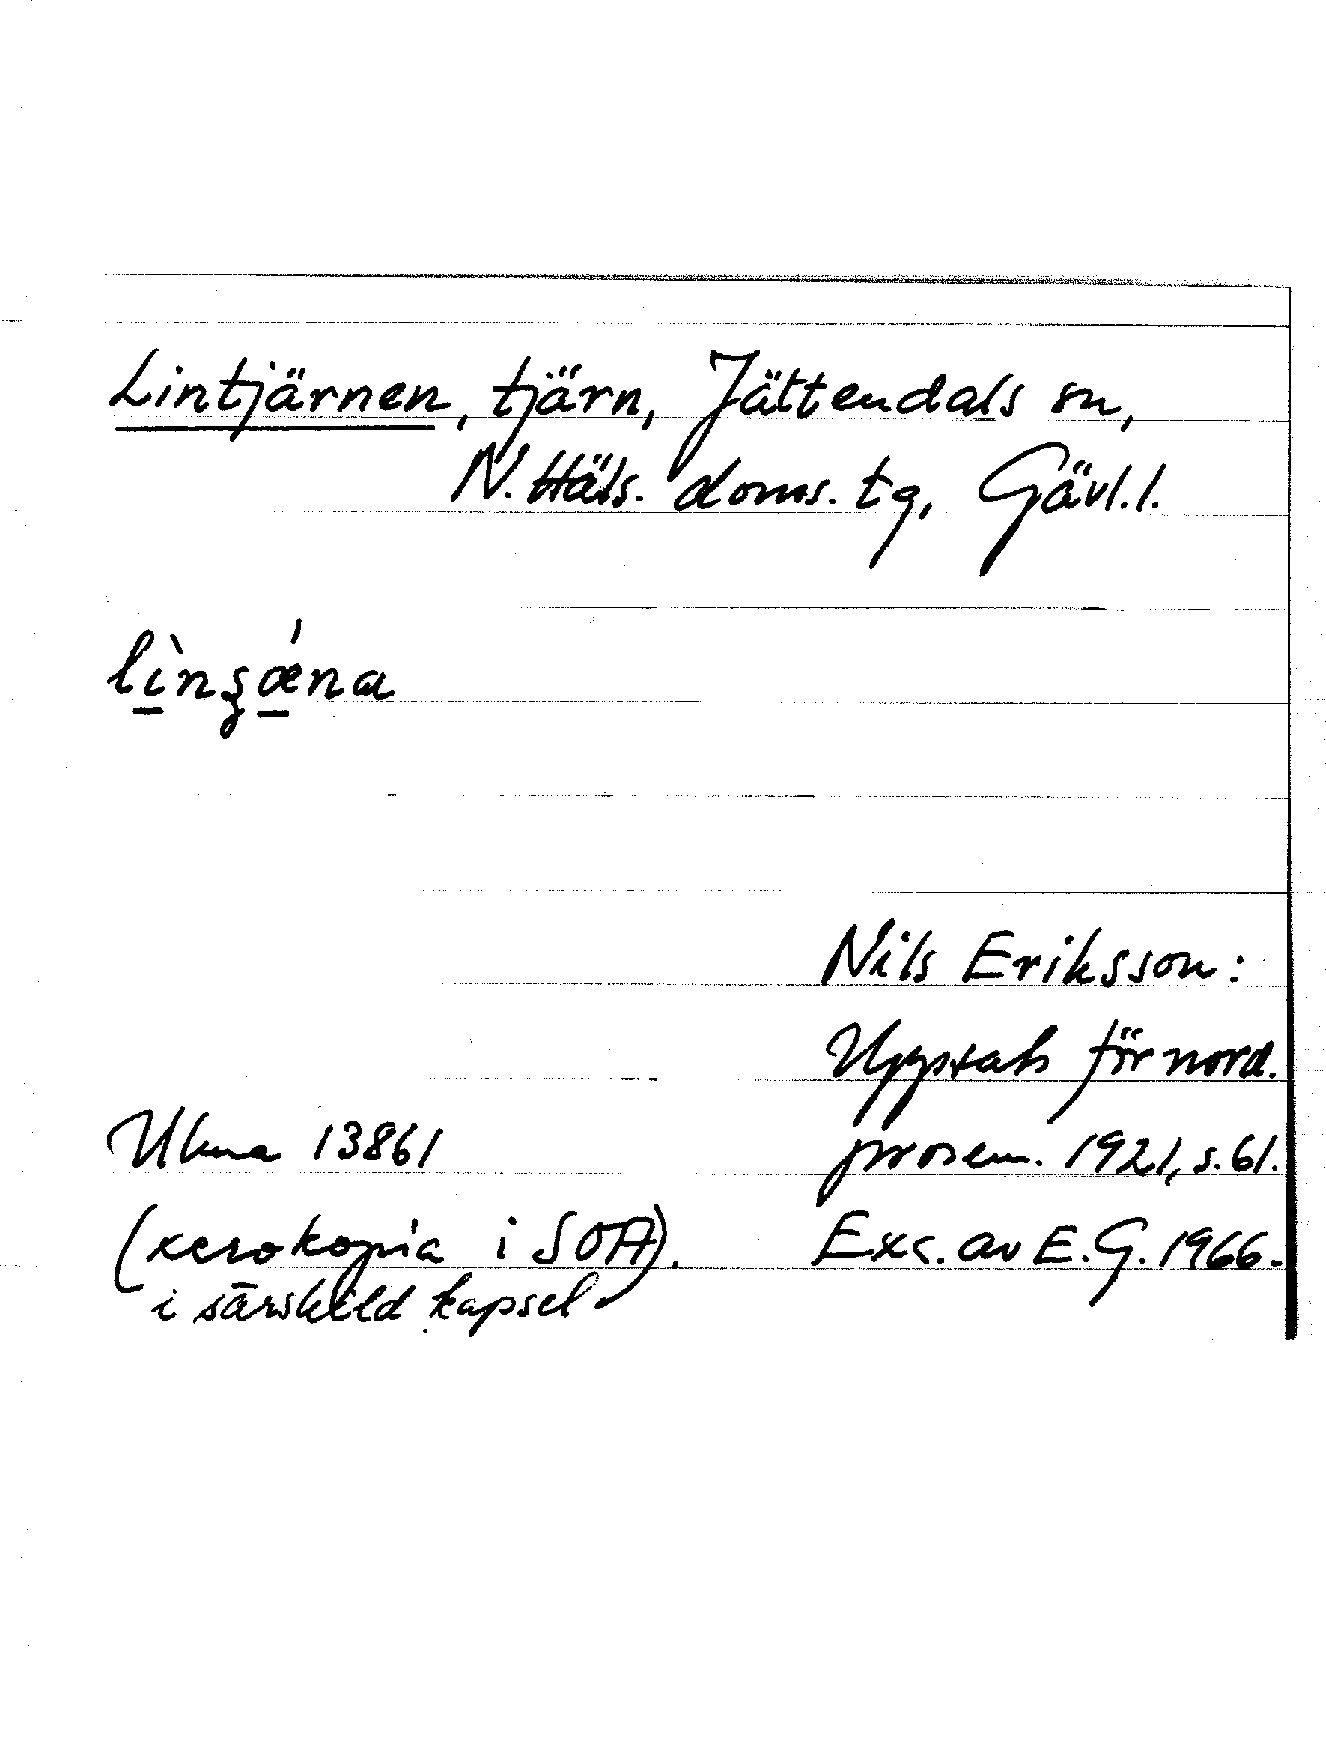 Lintjärnen, tjärn, Jättendals sn,
N. Häls. doms. tg, Gävl.l.
lìnʂǽna
Nils Eriksson:
Uppsats för nord.
Ulma 13861
prosem. 1921, s. 61.
(xerokopia i SOA).
Exc. av E.G. 1966.
i särskild kapsel